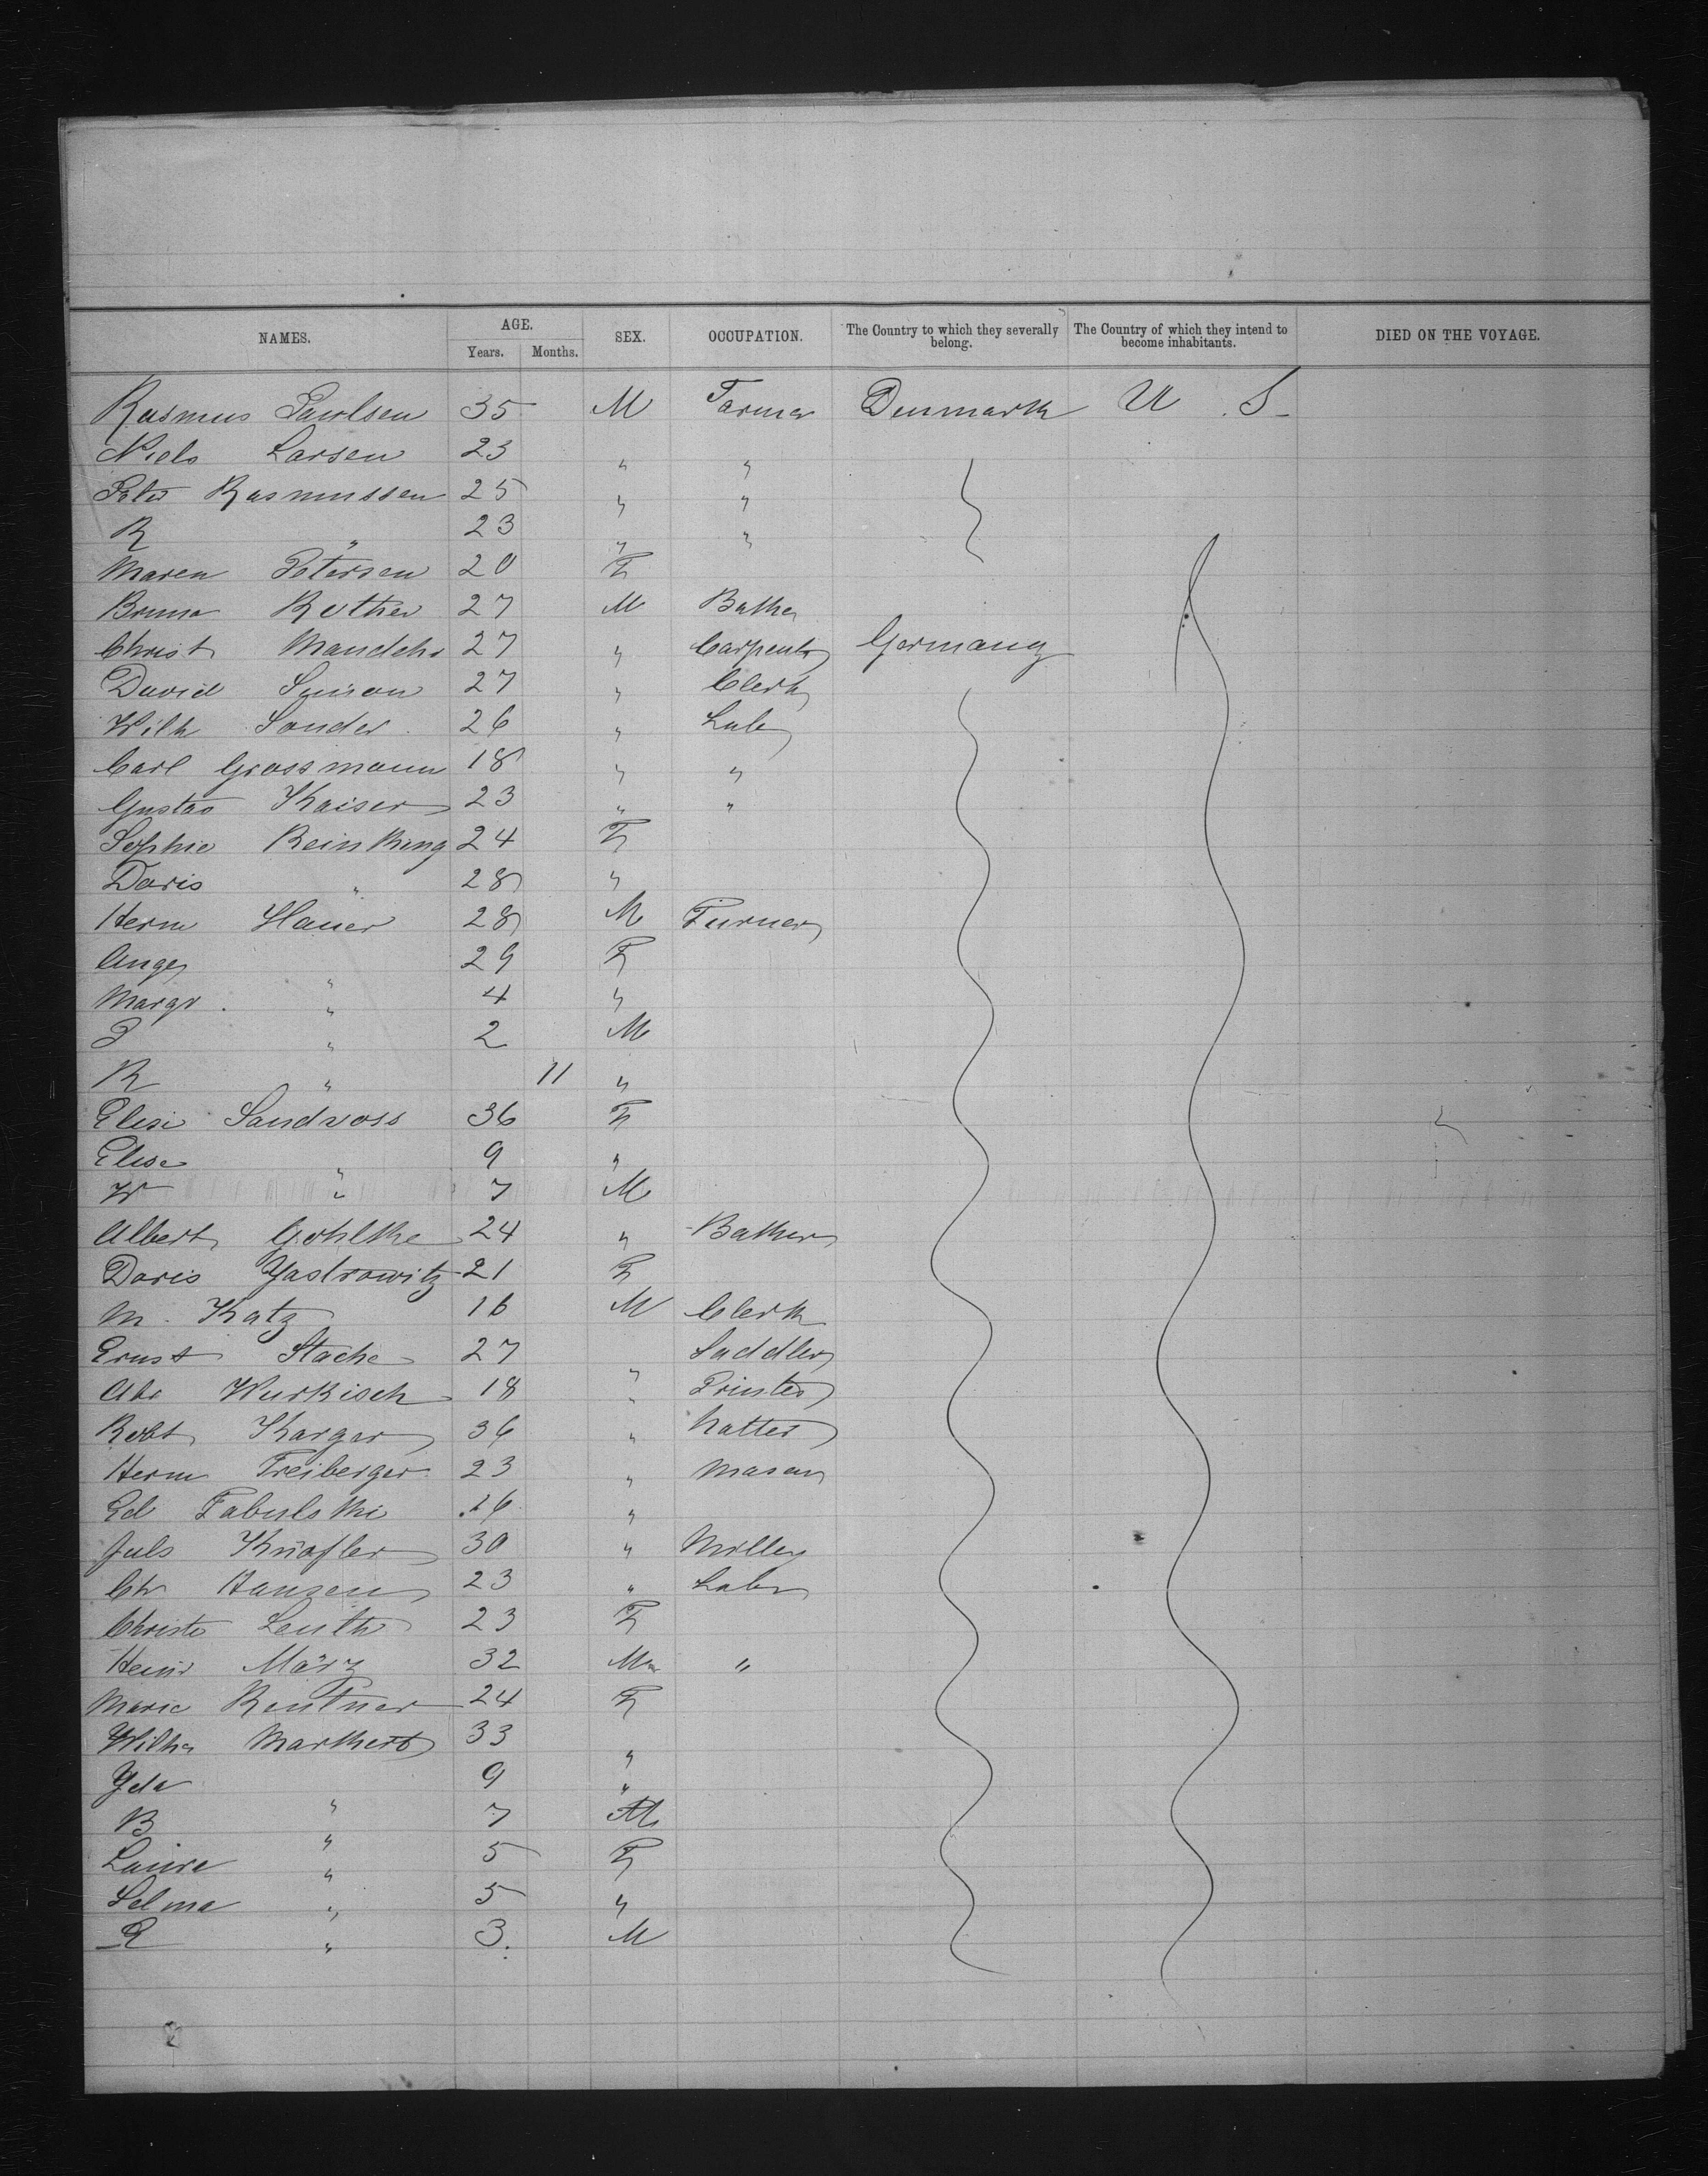 NAMES. AGE. SEX. OCCUPATION. The Country to which they severally belong. The Country of which they intend to become inhabitants. DIED ON THE VOYAGE.
Years. Months.
Rasmus Paulsen 35 M Farmer Denmark U. S.
Niels Larsen 23 " "
Peter Rasmussen 25 " "
R " 23 " "
Maren Petersen 20 F
Bruno Rother 27 M Baker
Christ 27 " Carpenter Germany
David Simon 27 " Clerk
Wilh Sander 26 " Lab
Carl Grossmann 18 " "
Gustav Kaiser 23 " "
Sophie Reinking 24 F
Doris " 28 "
Herm Hauer 28 M Turner
29 F
Margr " 4 "
P " 2 M
R " 11 "
Elise Sandvoss 36 F
Elise " 9 "
W " 7 M
Albert Gohlke 24 " Baker
Doris Yastrowitz 21 F
M. Katz 16 M Clerk
Ernst Stache 27 " Saddler
Wurkisch 18 " Printer
Robt Karger 36 " hatter
Herm Freiberger 23 " mason
Ed Fabulski 26 "
Juls Knöfler 30 " Miller
Chr Hansen 23 " Labr
Christe Leuth 23 F
Heinr März 32 M "
Marie Rentner 24 F
Wilh Markert 33 "
Yda " 9 "
B " 7 M
Laura " 5 F
Selma " 5 "
R " 3 M